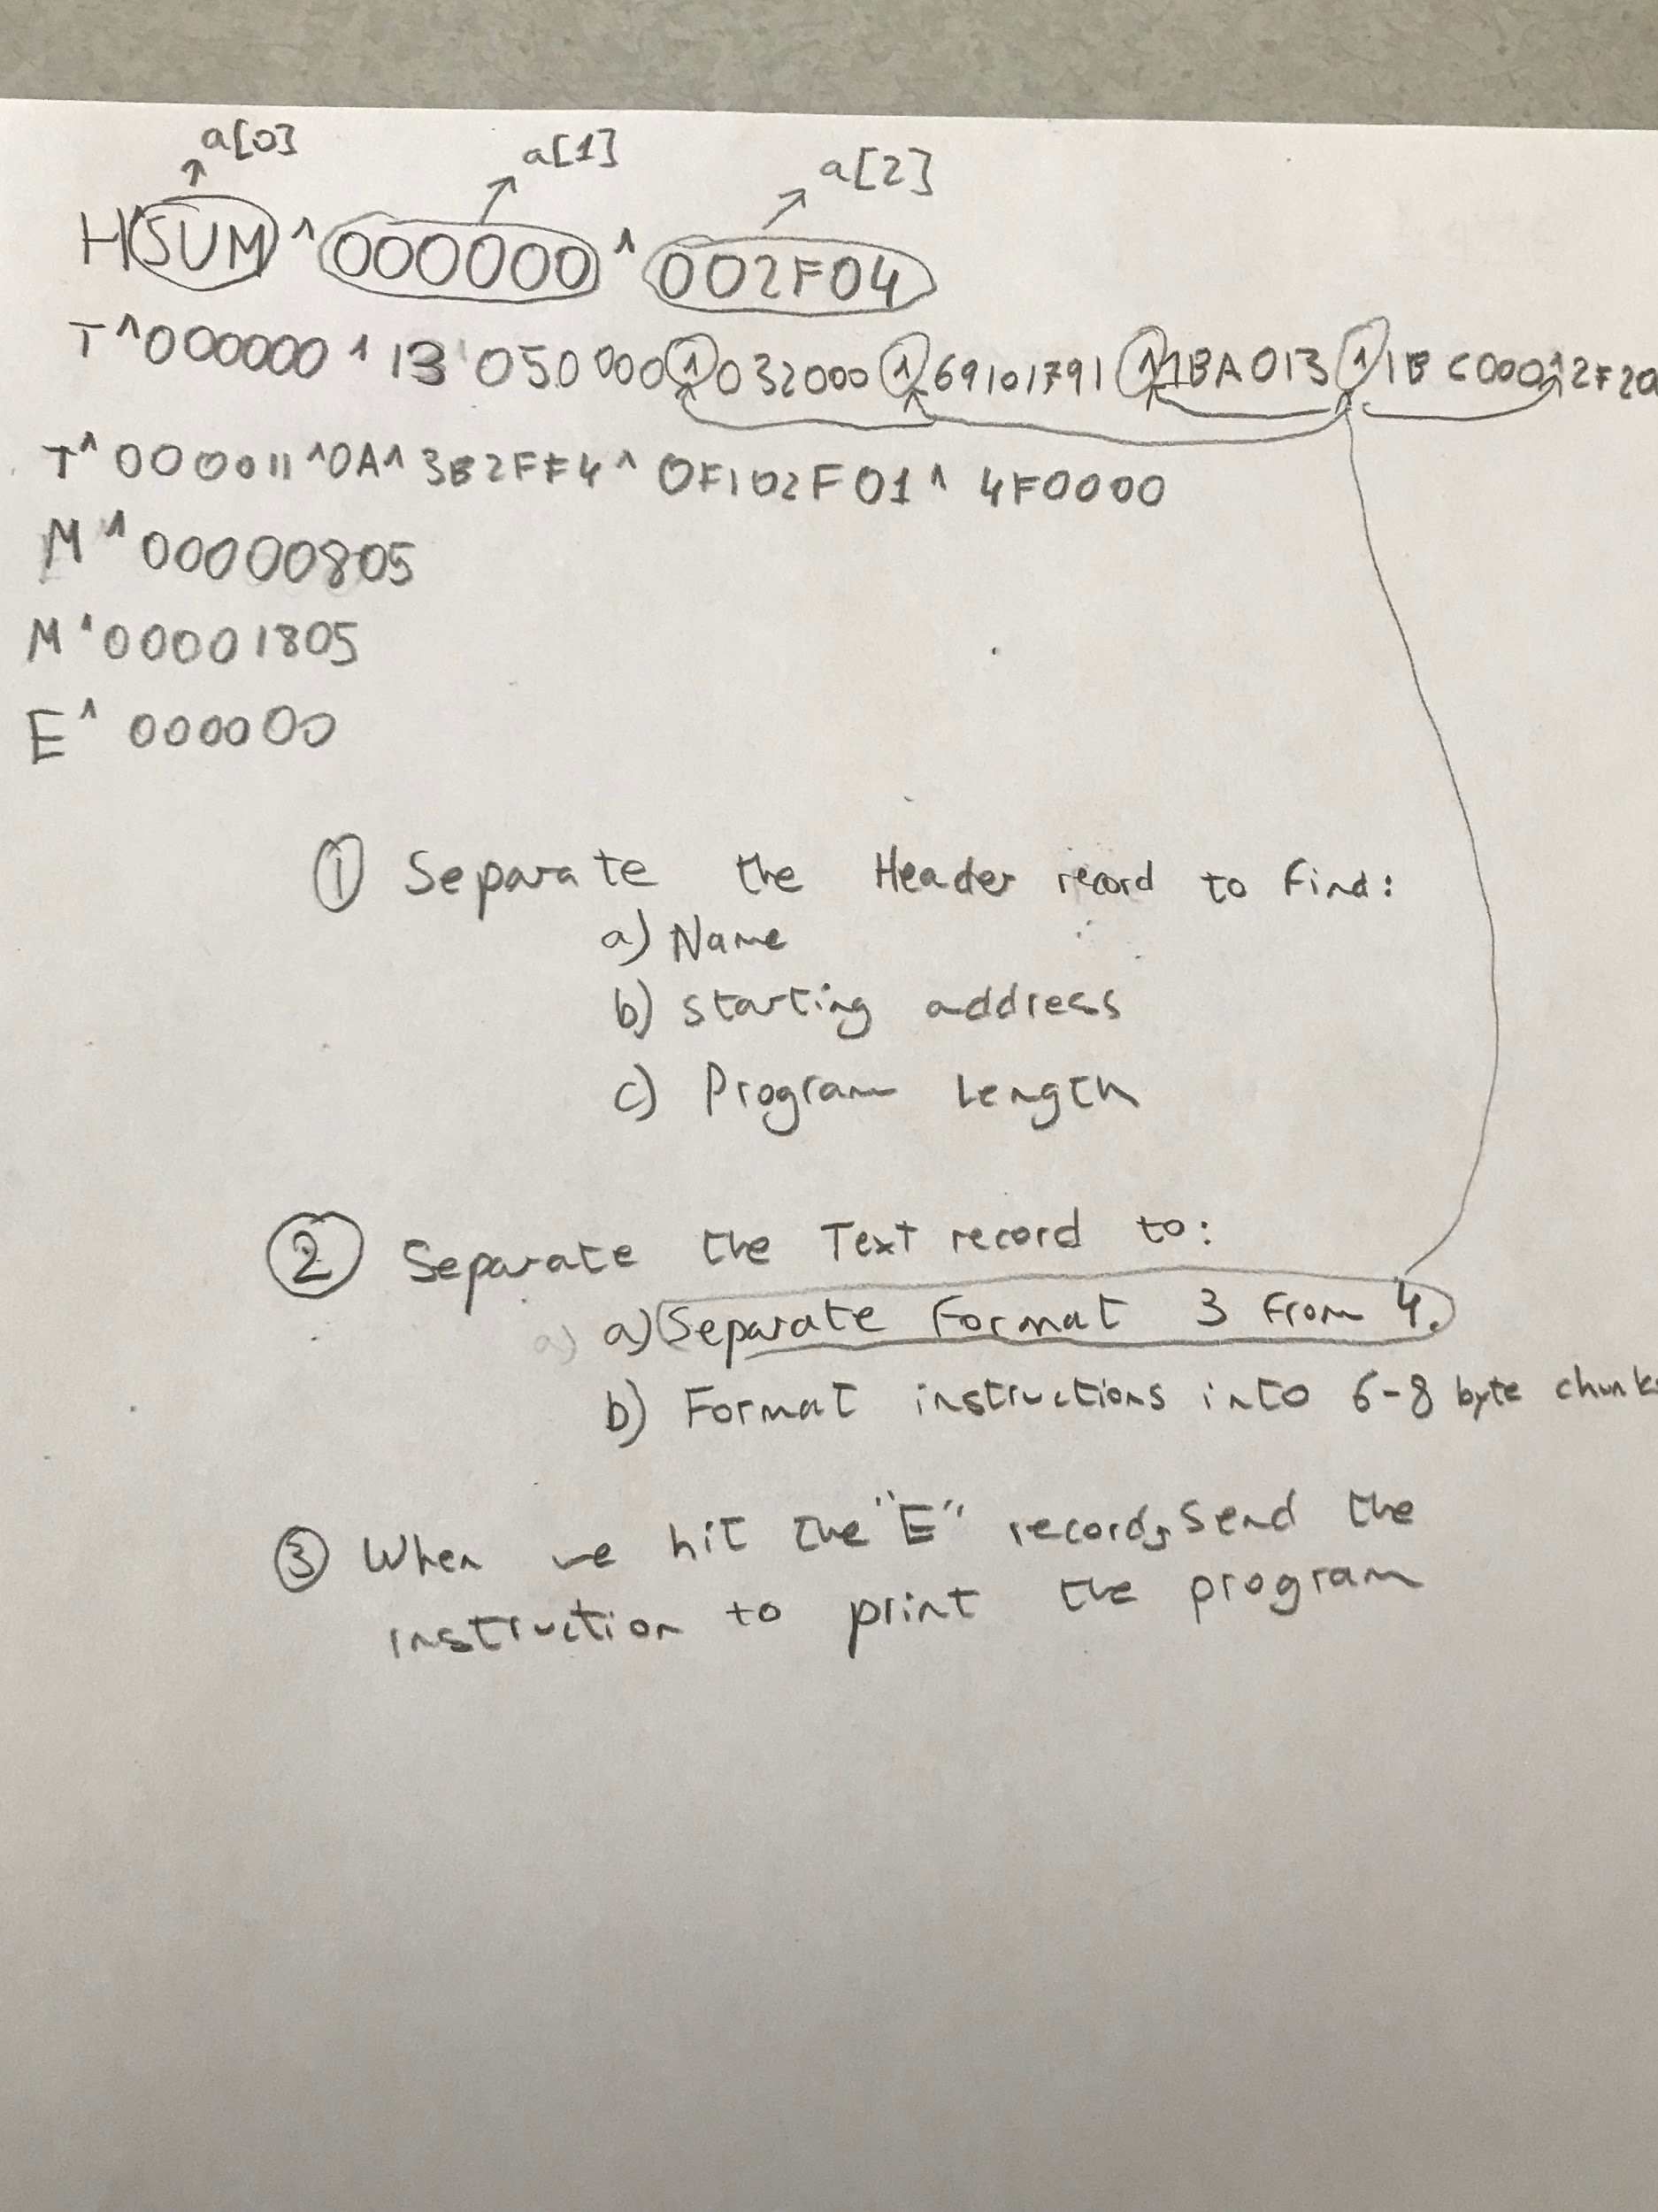 a[0] a[1] a[2]
H^SUM^000000^002F04
T^000000^13^050000^032000^69101791^1BA013^1BC000^2F20
T^000011^0A^3B2FF4^0F102F01^4F0000
M^00000805
M^00001805
E^000000
① Separate the Header record to find:
a) Name
b) starting address
c) Program Length
② Separate the Text record to:
a) Separate Format 3 from 4.
b) Format instructions into 6-8 byte chunks
③ When we hit the "E" record, send the
instruction to print the program